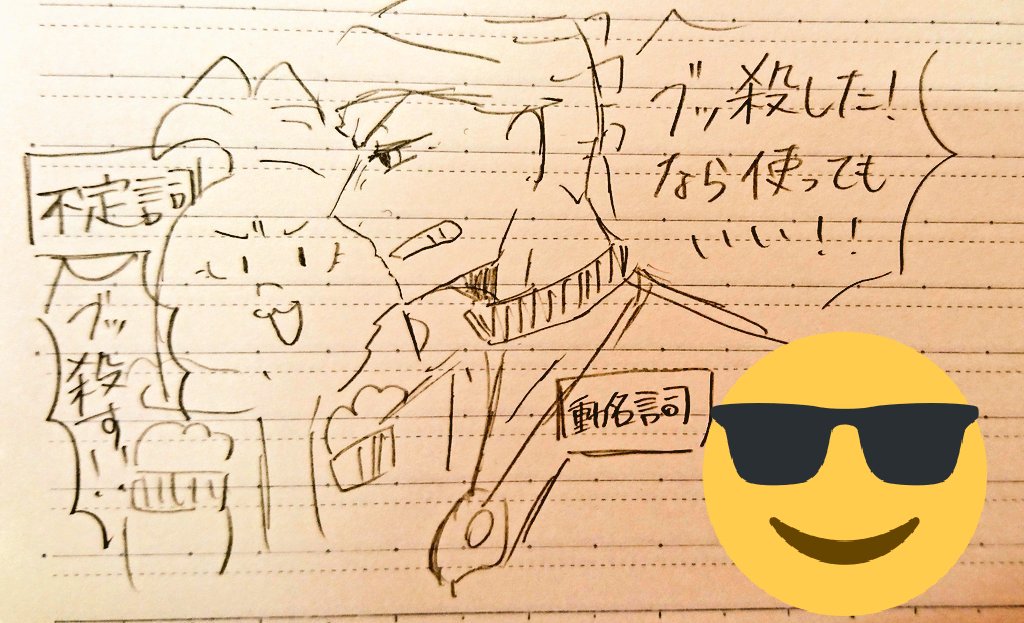 ブッ殺した!
なら使っても
いい!!
不定詞
ブッ
殺す
…
動名詞